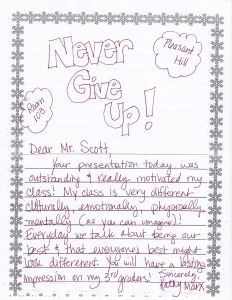 Never
Give
Up!
Pleasant
Hill
Room
100
Dear Mr. Scott,
Your presentation today was
outstanding & really motivated my
class! My class is very different
culturally, emotionally, physically
mentally (as you can imagine)!
Everyday we talk about being our
best & that everyone's best might
look different. You will have a lasting
impression on my 3rd graders! Sincerely,
Kathy Marx